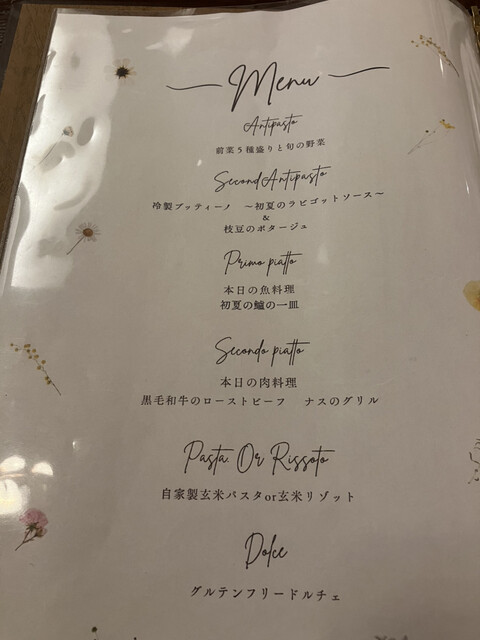 Menu
Antipasto
前菜5種盛りと旬の野菜
Second Antipasto
冷製プッティーノ ～初夏のラビゴットソース～
&
枝豆のポタージュ
Primo piatto
本日の魚料理
初夏の鱸の一皿
Secondo piatto
本日の肉料理
黒毛和牛のローストビーフ ナスのグリル
Pasta Or Rissoto
自家製玄米パスタor玄米リゾット
Dolce
グルテンフリードルチェ